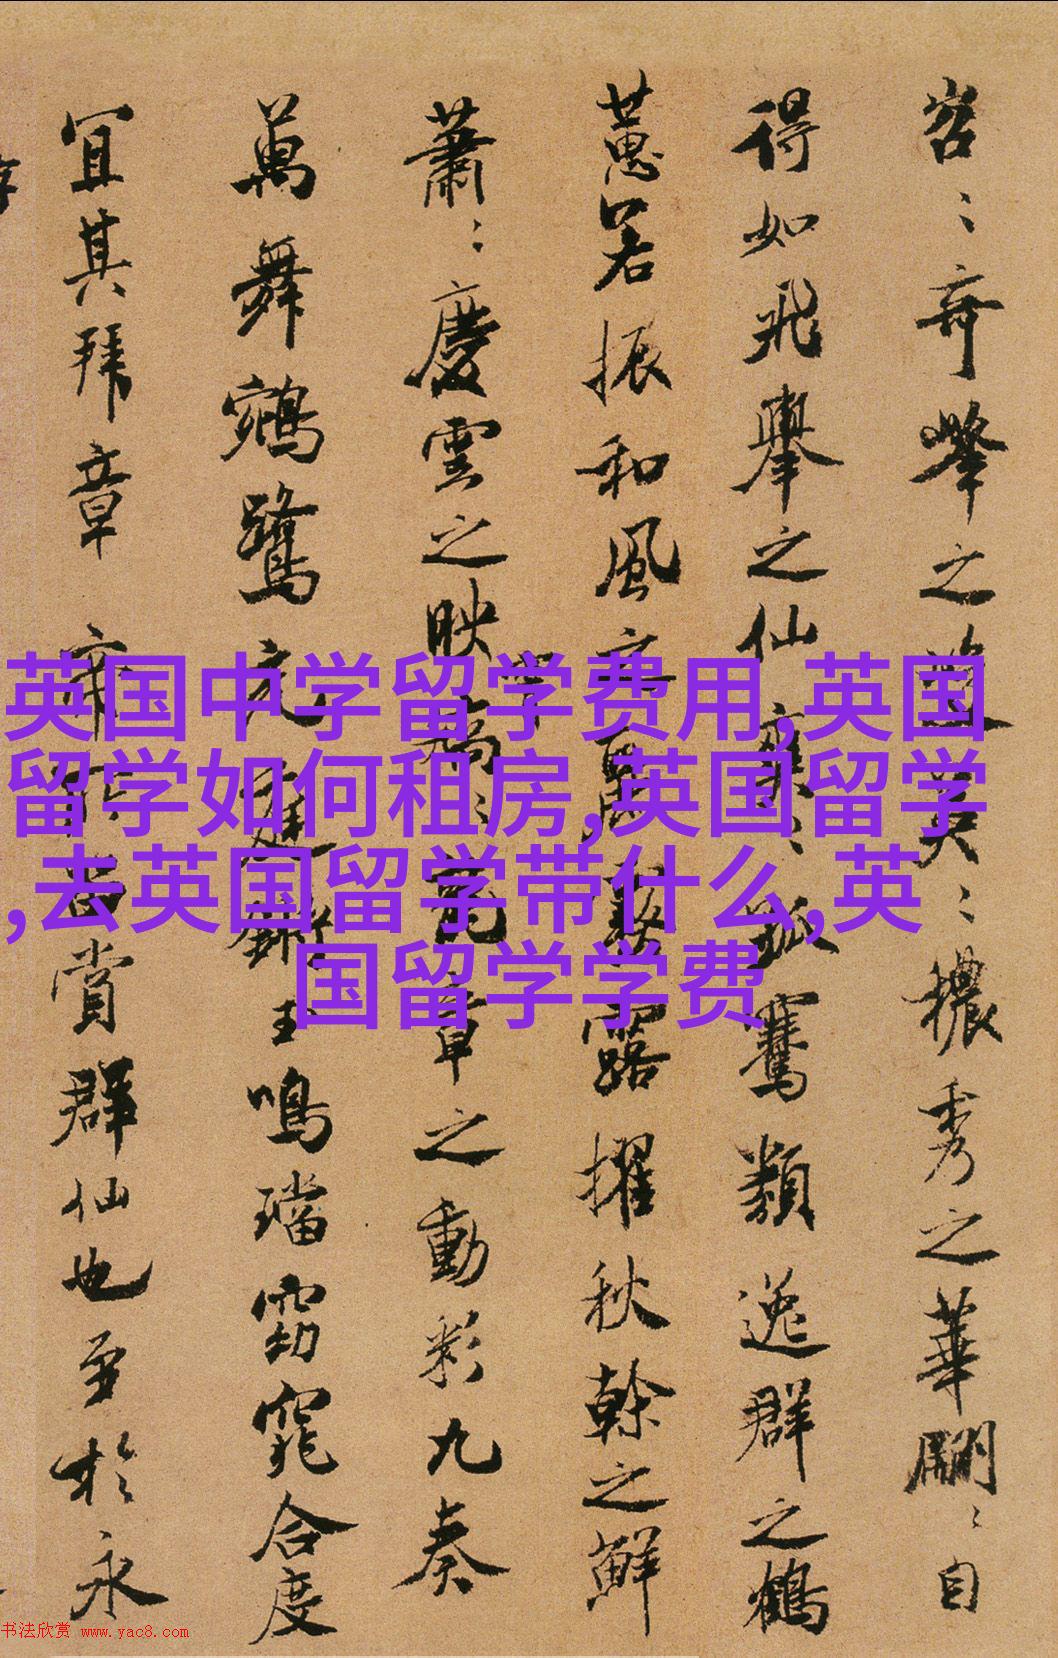 岧〻奇峯之
〻濃秀之華
〻自
得如飛舉之仙
孤騫類逸群之鶴
蕙若振和風
露擢秋幹之鮮
蕭〻慶雲之映
章之動彩九奏
萬舞鵷鷺
玉鳴璫窈窕合度
宜其拜章帝
賞群仙也至於永
英国中学留学费用,英国
留学如何租房,英国留学
,去英国留学带什么,英
国留学学费
书法欣赏 www.yac8.com